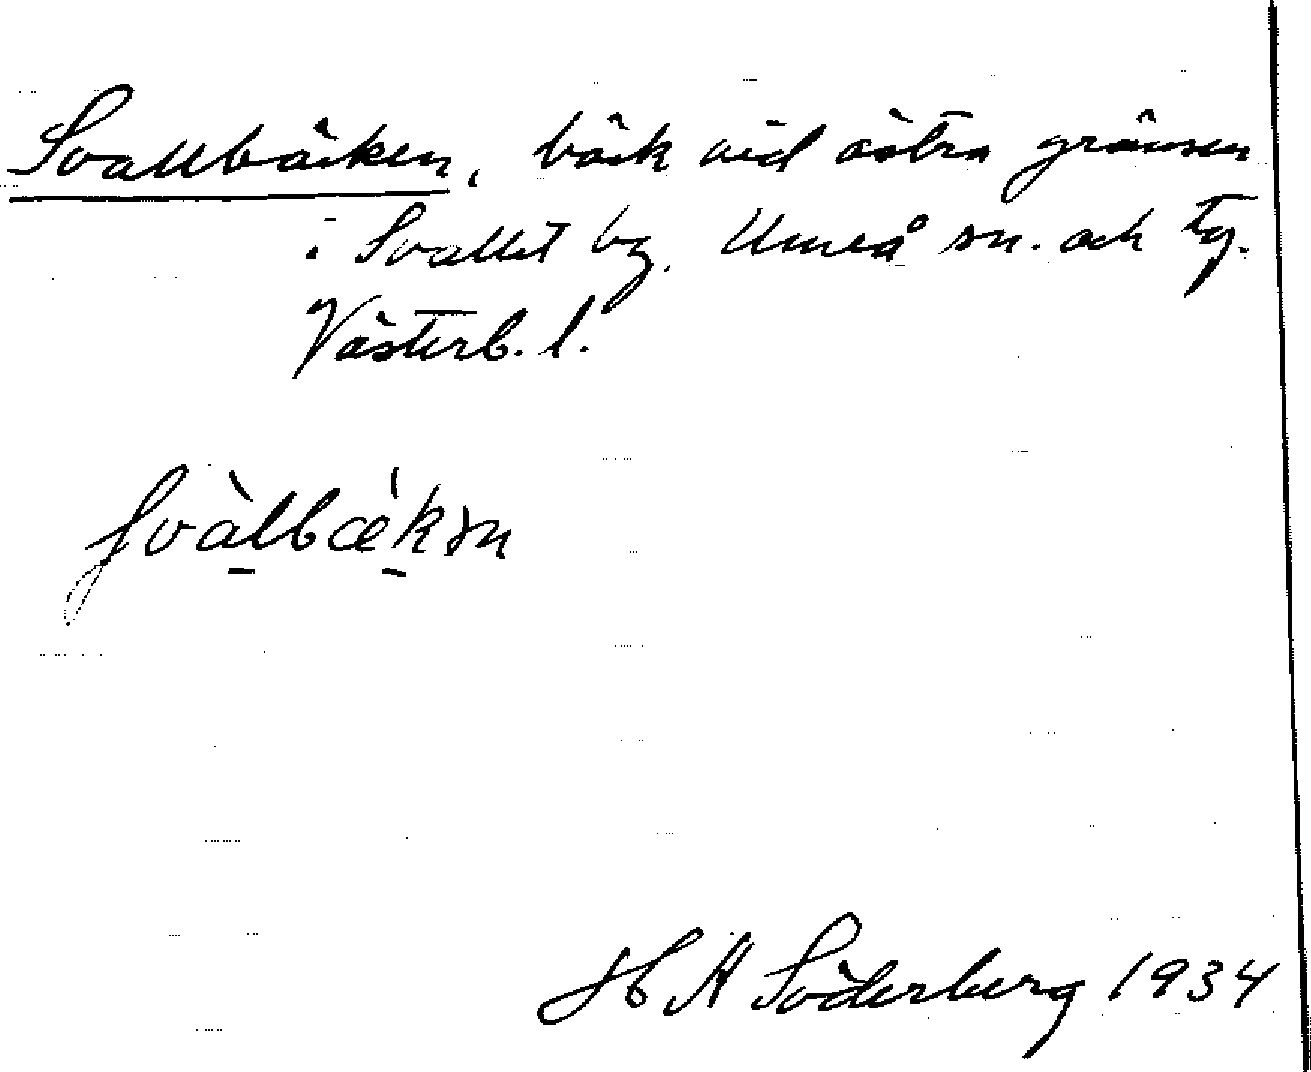 Svallbäcken, bäck vid östra gränsen
i Svallet by, Umeå sn. och tg.
Västerb. l.
svàlbækən
H A Söderberg 1934